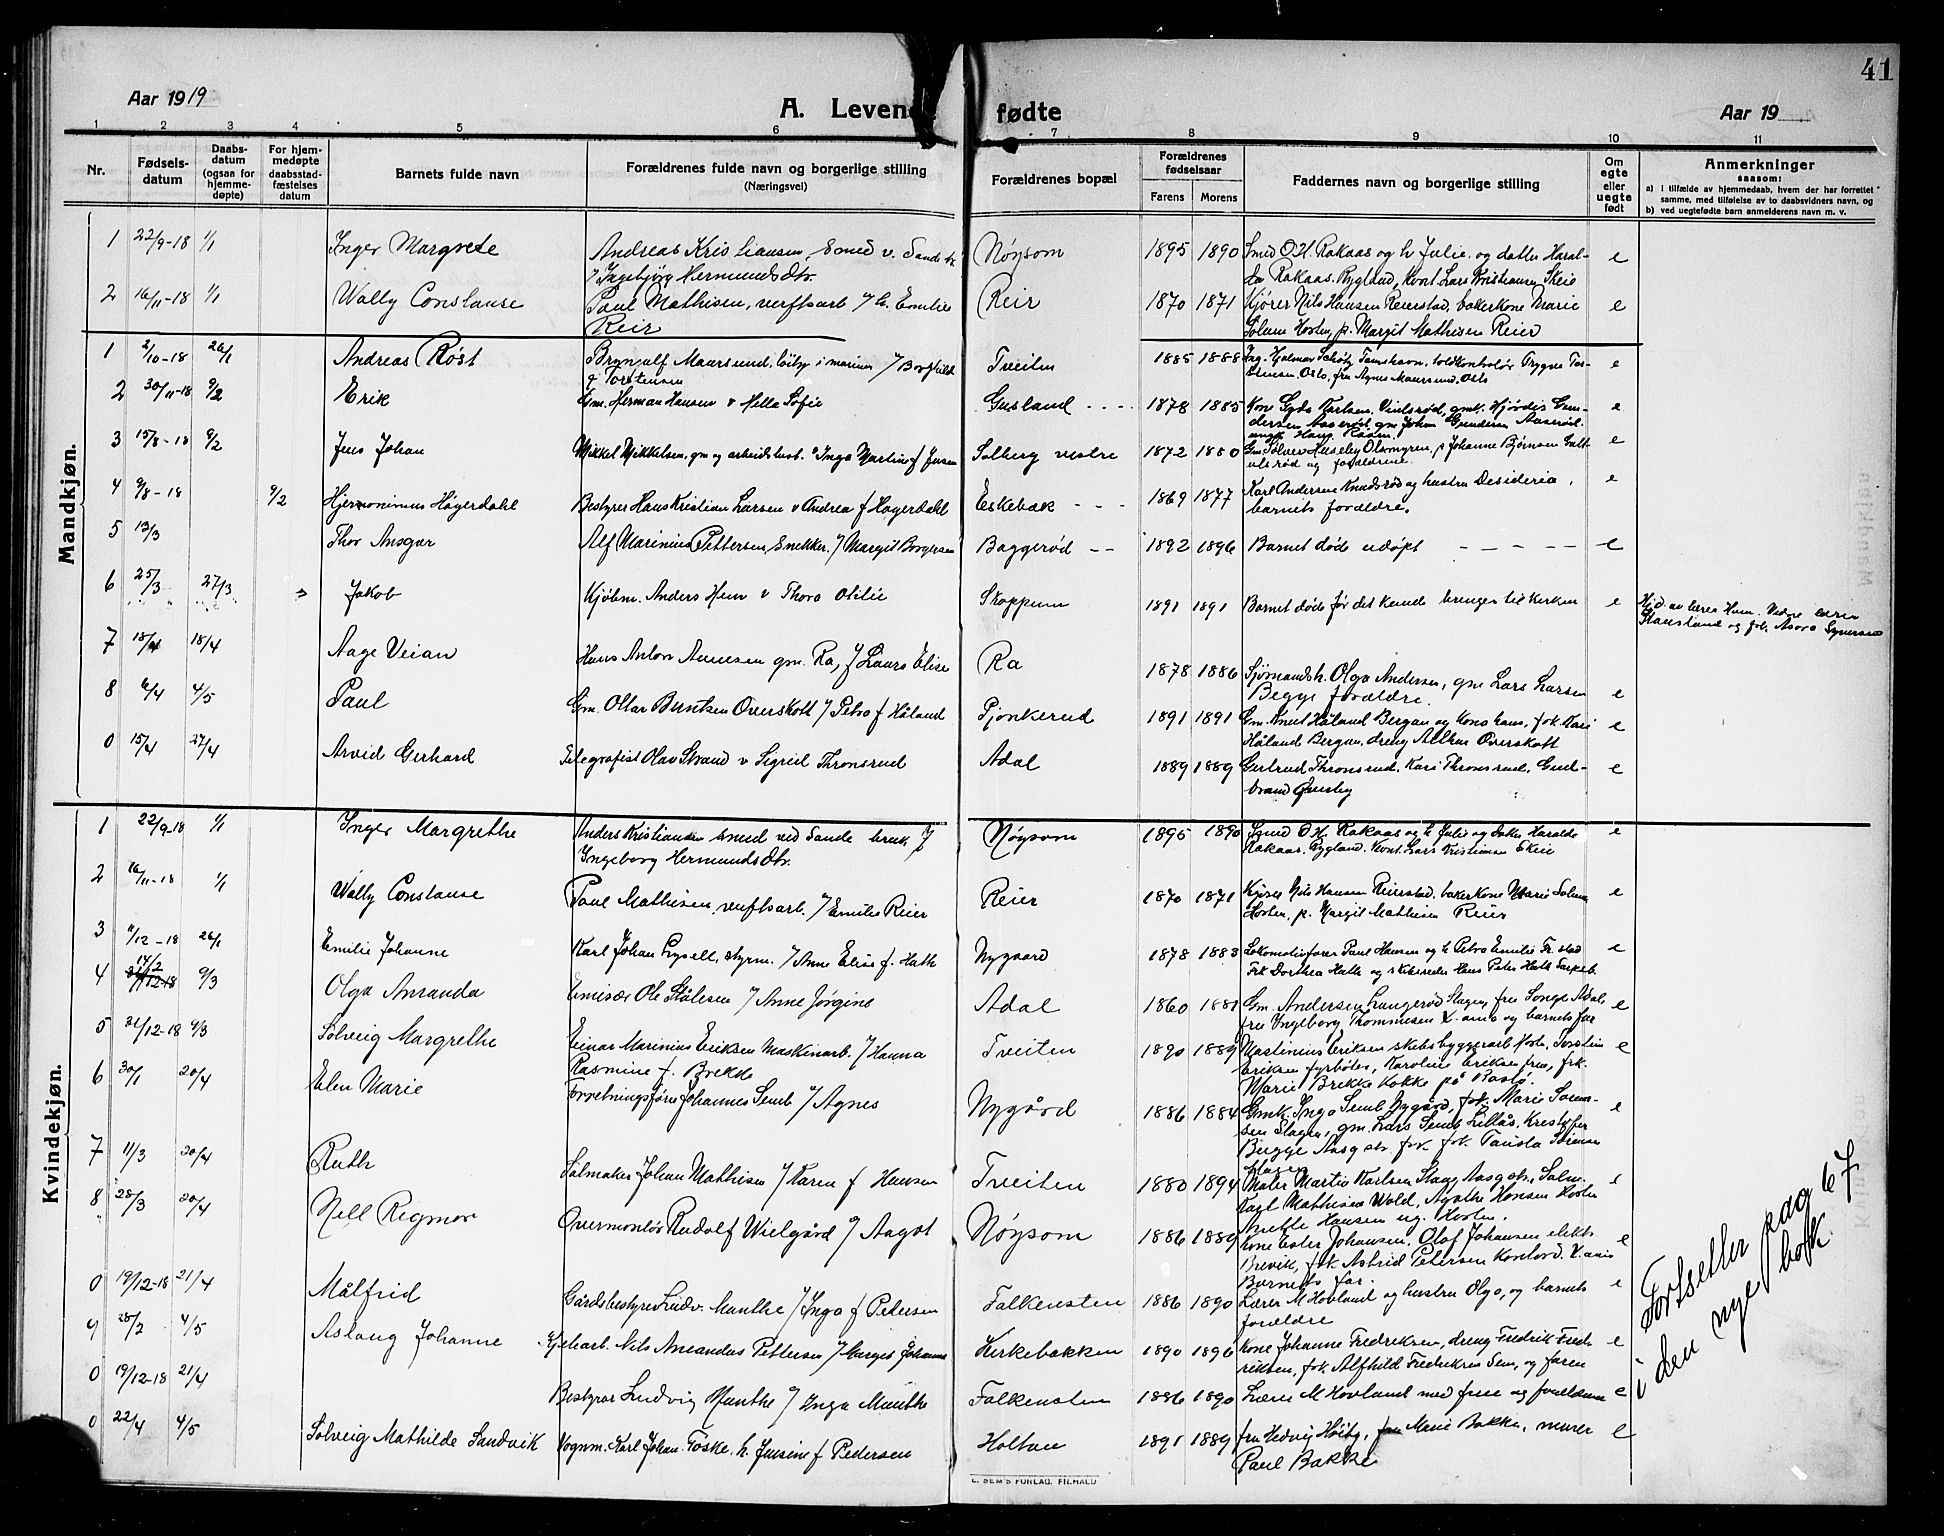 41
Aar 1919
A. Levende fødte
Aar 19
1 2 3 4 5 6 7 8 9 10 11
Nr.
Fødsels-
datum
Daabs-
datum
(ogsaa for
hjemme-
døpte)
For hjem-
medøpte
daabsstad-
fæstelses
datum
Barnets fulde navn
Forældrenes fulde navn og borgerlige stilling
(Næringsvei)
Forældrenes bopæl
Forældrenes
fødselsaar
Farens Morens
Faddernes navn og borgerlige stilling
Om
egte
eller
uegte
født
Anmerkninger
saasom:
a) i tilfælde av hjemmedaab, hvem der har forrettet
samme, med tilføielse av to daabsvidners navn, og
b) ved uegtefødte barn anmelderens navn m. v.
1 22/9-18 1/1 Inger Margrete Andreas Kristiansen, Smed v. Sande br. Nøysom 1895 1890 Smed O.H. Rakaas og h Julie og datter Haral-
7 Ingebjørg Hermundsdtr. da Rakaas. Bygland, Kont Lars Kristiansen Skeie e
2 16/11-18 1/1 Wally Constanse Paul Mathisen, verftsarb. 7 h. Emilie Reir 1870 1871 Kjører Nils Hansen Reierstad, bakerkone Marie e
Reir Solum Horten, p. Margit Mathisen Reier
Mandkjøn.
1 2/10-18 26/1 Andreas Røst Brynjulf Maarsund, i marinen 7 Borghild Tveiten 1885 1888 Ing. Hjalmar Schøtz, toldkontrolør Trygve Tor- e
f Torstensen stensen. Oslo, fru Agnes Maarsund, Oslo
2 30/11-18 9/2 Erik Gm. Herman Hansen v Hella Sofie Gusland 1878 1885 Kone Gyda Karlsen, gmk. Hjørdis Gun- e
dersen Aaserød, gm Johan Gundersen Aaserød
3 15/8-18 9/2 Jens Johan Mikkel Mikkelsen, gm og arbeidsb. v Inga Martine f Jensen Solberg vestre 1872 1880 Gm Sølver Huseby Olsmyren, p Johanne Bjørnsen e
og forældrene.
4 9/8-18 9/2 Hjeronimus Høyerdahl Bestyrer Hans Kristian Larsen v Andrea f Høyerdahl Eskebæk 1869 1877 Karl Andersen Knudsrød og hustru Desideria, e
barnets forældre.
5 13/3 Thor Ansgar Alf Marinius Pettersen, Snekker. 7 Margit Borgersen Baggerød 1892 1896 Barnet døde udøpt e
6 25/3 27/3 Jakob Kjøbm. Anders Hem v Thora Otilie Skoppum 1891 1891 Barnet døde før det kunde bringes til kirken e Hjd. av lærer Hem. Vidne lærer
Flausland og frk. Asora
7 18/4 Aage Veian Hans Anton Aunesen gm. Ra, 7 Laura Elise Ra 1878 1886 Sjømandsh. Olga Andersen, gm Lars Larsen
Begge forældre. e
8 6/4 4/5 Paul Gm. Ottar Berntsen Overskott 7 Petra f Håland Pjonkerud 1891 1891 Gm. Knut Håland Bergan og Kone hans, frk. Kari e
Håland Bergan, dreng Arthur Overskott
0 15/4 27/4 Arvid Gerhard Telegrafist Olav Strand v Sigrid Thronsrud Adal 1889 1889 Gertrud Thronsrud, Kari Thronsrud, Gud- e
brand
Kvindekjøn.
1 22/9-18 1/1 Inger Margrethe Anders Kristiansen smed ved Sande bruk 7 Nøysom 1895 1890 Smed O.H. Rakaas og h Julie og datter Haralda e
Ingeborg Hermundsdtr. Rakaas, Bygland. Kont. Lars Kristiansen Skeie
2 16/11-18 1/1 Wally Constanse Paul Mathisen, verftsarb. 7 Emilie Reier Reier 1870 1871 Kjører Nils Hansen Reierstad, bakerkone Marie Solum e
Horten, p. Margit Mathisen Reier
3 11/12-18 26/1 Emilie Johanne Karl Johan Lysell, styrm. 7 Anne Elise f. Hath Nygaard 1878 1883 Lokomotivfører Paul Hansen og h Petra Emilie e
Frk Dorthea Hath og skibsreder Hans Peter Hath
4 14/2 9/3 Olga Amanda Emisær Ole Stålesen 7 Anne Jørgine Adal 1860 1881 Gm. Andersen Langerød Slagen, fru Songe Adal, e
fru Ingeborg Thommesen X-ania og barnets far
5 31/12-18 9/3 Solveig Margrethe Einar Marinius Eriksen Maskinarb. 7 Hanna Tveiten 1890 1889 Mastinius Eriksen skibsbyggerarb Horten, Torstein e
Rasmine f. Brekke Eriksen fyrbøter, Karoline Eriksen frue, frk.
Marie Brekke kokke på Rastø.
6 30/1 20/4 Elen Marie Forretningsfører Johannes Semb 7 Agnes Nygård 1886 1884 Gmk. Inga Semb Nygård, frk. Marie Søren- e
sen Slagen, gm. Lars Semb Lillås, Kristoffer
Bugge Aasgstr. frk. Tausta Sørensen
Slagen
7 11/3 20/4 Ruth Salmaker Johan Mathisen 7 Karen f Hansen Tveiten 1880 1894 Maler Martin Karlsen Slagg Aasgstr, Salm. e
Karl Mathisen Wold, Agathe Hansen Horten
Anette Hansen ug. Horten.
8 28/3 20/4 Nell Rigmor Overmontør Rudolf Wielgård 7 Aagot Nøysom 1886 1889 Kone Ester Johansen, Olaf Johansen elektr. e
Brevik, frk Astrid Petersen Kontord. X-ania
Barnets far.
0 19/12-18 21/4 Målfrid Gårdsbestyrer Ludv. Manthe 7 Inga f Pedersen Falkensten 1886 1890 Lærer M Hovland og hustru Olga, og barnets e
forældre
9 25/2 4/5 Aslaug Johanne Nils Amandus Pettersen 7 Marget Johanne Kirkebakken 1890 1896 Kone Johanne Fredriksen, dreng Fredrik Fred- e
riksen, frk. Alfhild Fredriksen Sem, og faren
0 19/12-18 21/4 Bestyrer Ludvig Manthe 7 Inga Manthe Falkensten 1886 1890 Lærer M Hovland med frue og forældrene e
0 22/4 4/5 Solveig Mathilde Sandvik Vognm. Karl Johan Foske. h. Jensine f Pedersen Holtan 1891 1889 fru Hedvig Høiby, fru Marie Bakke, murer e
Paul Bakke
Fortsetter pag 67
i den nye bok.
E. SEM'S FORLAG, FR.HALD